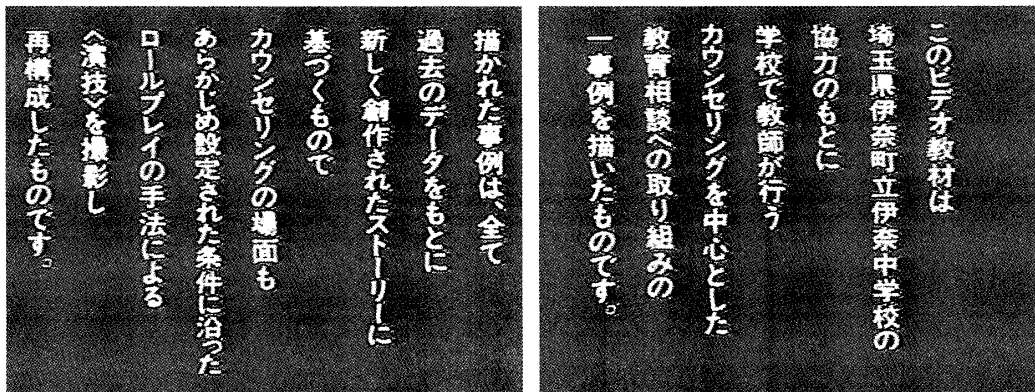 このビデオ教材は
埼玉県伊奈町立伊奈中学校の
協力のもとに
学校で教師が行う
カウンセリングを中心とした
教育相談への取り組みの
一事例を描いたものです。
描かれた事例は、全て
過去のデータをもとに
新しく創作されたストーリーに
基づくもので
カウンセリングの場面も
あらかじめ設定された条件に沿った
ロールプレイの手法による
<演技>を撮影し
再構成したものです。